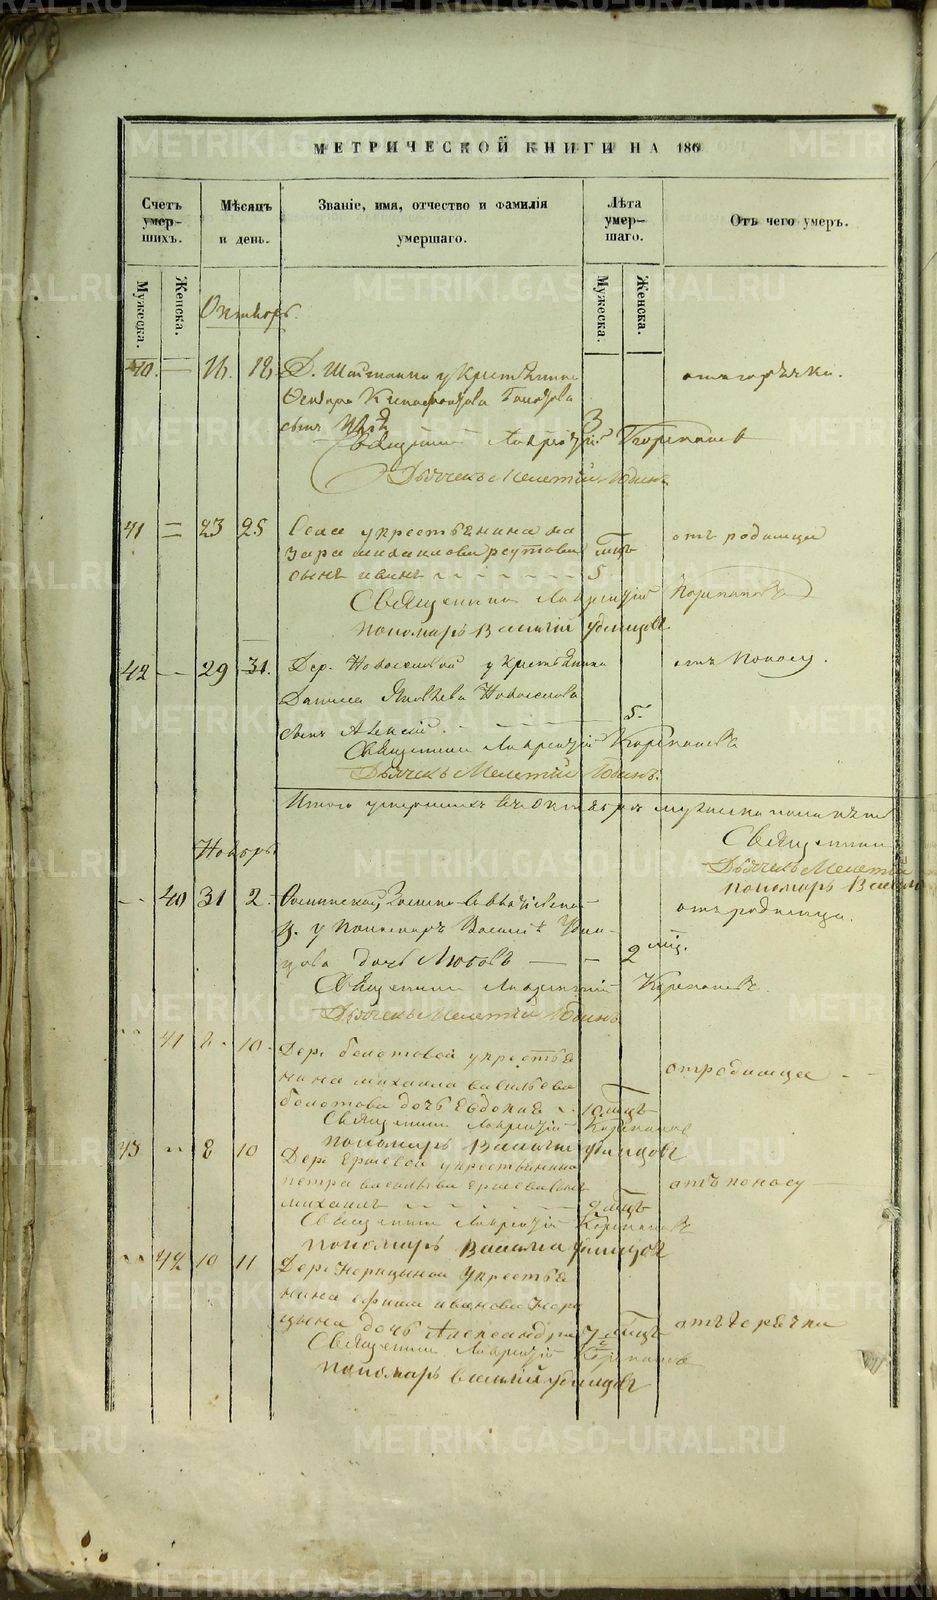 МЕТРИЧЕСКОЙ КНИГИ НА 186
Счетъ умер-шихъ.
Мѣсяцъ и день.
Званіе, имя, отчество и фамилія умершаго.
Лѣта умер-шаго.
Отъ чего умеръ.
Мужеска.
Женска.
Мужеска.
Женска.
Октябрь.
40. — 16. 18. Д. у Крестьянина
отъ горячки.
сынъ
3
Священникъ Лаврентій Корепановъ
Дьячекъ Мелетій Юдинъ
41 = 23 25 Села у крестьянина на
отъ родимца
зара михаилова реутова мцъ
сынъ иванъ 5
Священникъ Лаврентій Корепановъ
пономарь Василій Удинцовъ
42 — 29 31. Дер. Новоселовой у Крестьянина
отъ поносу.
Данила Яковлева Новоселова
сынъ Алексій 5.
Священникъ Лаврентій Корепановъ
Дьячекъ Мелетій Юдинъ.
Итого умершихъ въ Октябрѣ мужеска пола
Священникъ
Дьячекъ Мелетій
пономарь Васил
Ноябрь
40 31 2.
отъ родимца.
у Пономаря Василія Удин-
цова дочь Любовь — 2 мц.
Священникъ Лаврентій Корепановъ.
Дьячекъ Мелетій Юдинъ
41 8 10. Дер. болотовой у крестья
отродимца
нина михаила васильева
болотова дочь Евдокия 10 мцъ
Священникъ Лаврентій Корепановъ
пономарь Василій Удинцовъ
43 8 10 Дер. Ершевой у крестьянина
отъ поносу
петра васильева ершева сынъ
михаилъ 9 мцъ
Священникъ Лаврентій Корепановъ
пономарь Василій Удинцовъ
42 10 11 Дер. у крестья
нина ефима иванова
отъ горячки
цына дочь Александра 7 мцъ
Священникъ Лаврентій Корепановъ
пономарь василий удинцовъ
METRIKI.GASO-URAL.RU